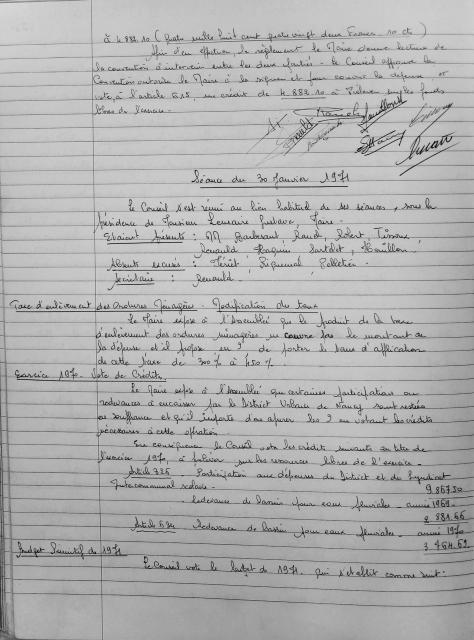 à 4.882.10 (Quatre mille huit cent quatre vingt deux Francs 10 cts)
Afin d'en effectuer le règlement le Maire donne lecture de
la convention d'intervenir entre les deux parties - le Conseil approuve la
Convention autorise le Maire à la signer et pour couvrir la dépense, et
vote, à l'article 615, un crédit de 4.882.10 à prélever sur les fonds
libres de l'exercice.
Séance du 30 Janvier 1971
Le Conseil s'est réuni au lieu habituel de ses séances, sous la
présidence de Monsieur Lemaire Gustave, Maire.
Etaient présents : MM Barberant, Robert,
Renauld
Absents excusés : Pelletier.
Secrétaire : Renauld
Taxe d'enlèvement des Ordures Ménagères. Modification du taux
Le Maire expose à l'Assemblée que le produit de la taxe
d'enlèvement des ordures ménagères ne couvre pas le montant de
la dépense et il propose de porter le taux d'application
de cette taxe de 300 % à 450 %
Exercice 1970. Vote de Crédits
Le Maire expose à l'Assemblée que certaines participations ou
redevances à encaisser par le District Urbain de Nancy sont restées
en souffrance et qu'il importe d'en apurer les en votant les crédits
nécessaires à cette opération.
En conséquence le Conseil vote les crédits suivants au titre de
l'exercice 1970 à prélever sur les ressources libres de l'exercice -
Participation aux dépenses du District et du Syndicat
Intercommunal scolaire - 9 867.50
- redevance de bassin pour eaux pluviales - année 1969 -
2 881.66
Article 634 Redevance de bassin pour eaux pluviales - année 1970
3 464.62
Budget Primitif de 1971
Le Conseil vote le budget de 1971. qui s'établit comme suit :